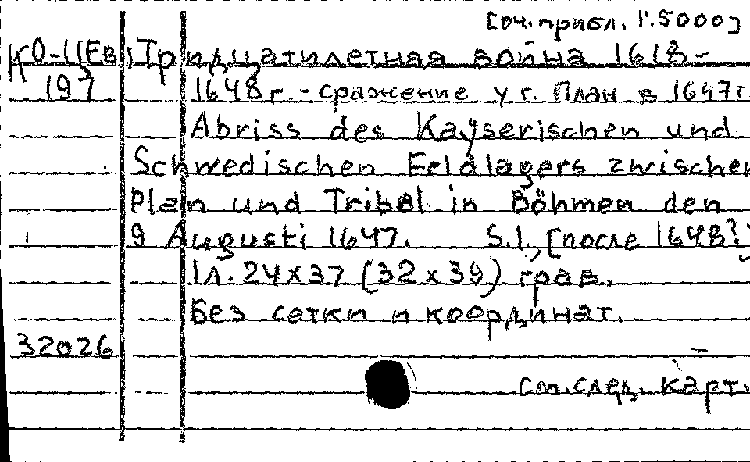 [оч. прибл. 1:5000]
КО-11Ев Тридцатилетная война 1618-
197 1648г - сражение у г. План в 1647г
Abriss des Kayserischen und
Schwedischen Feldlagers zwischen
Plan und Tribel in Böhmen den
9 Augusti 1647. S.l., [после 1648?]
1л. 24x37 (32x39) грав.
Без сетки и координат.
32026
см. след. карт.